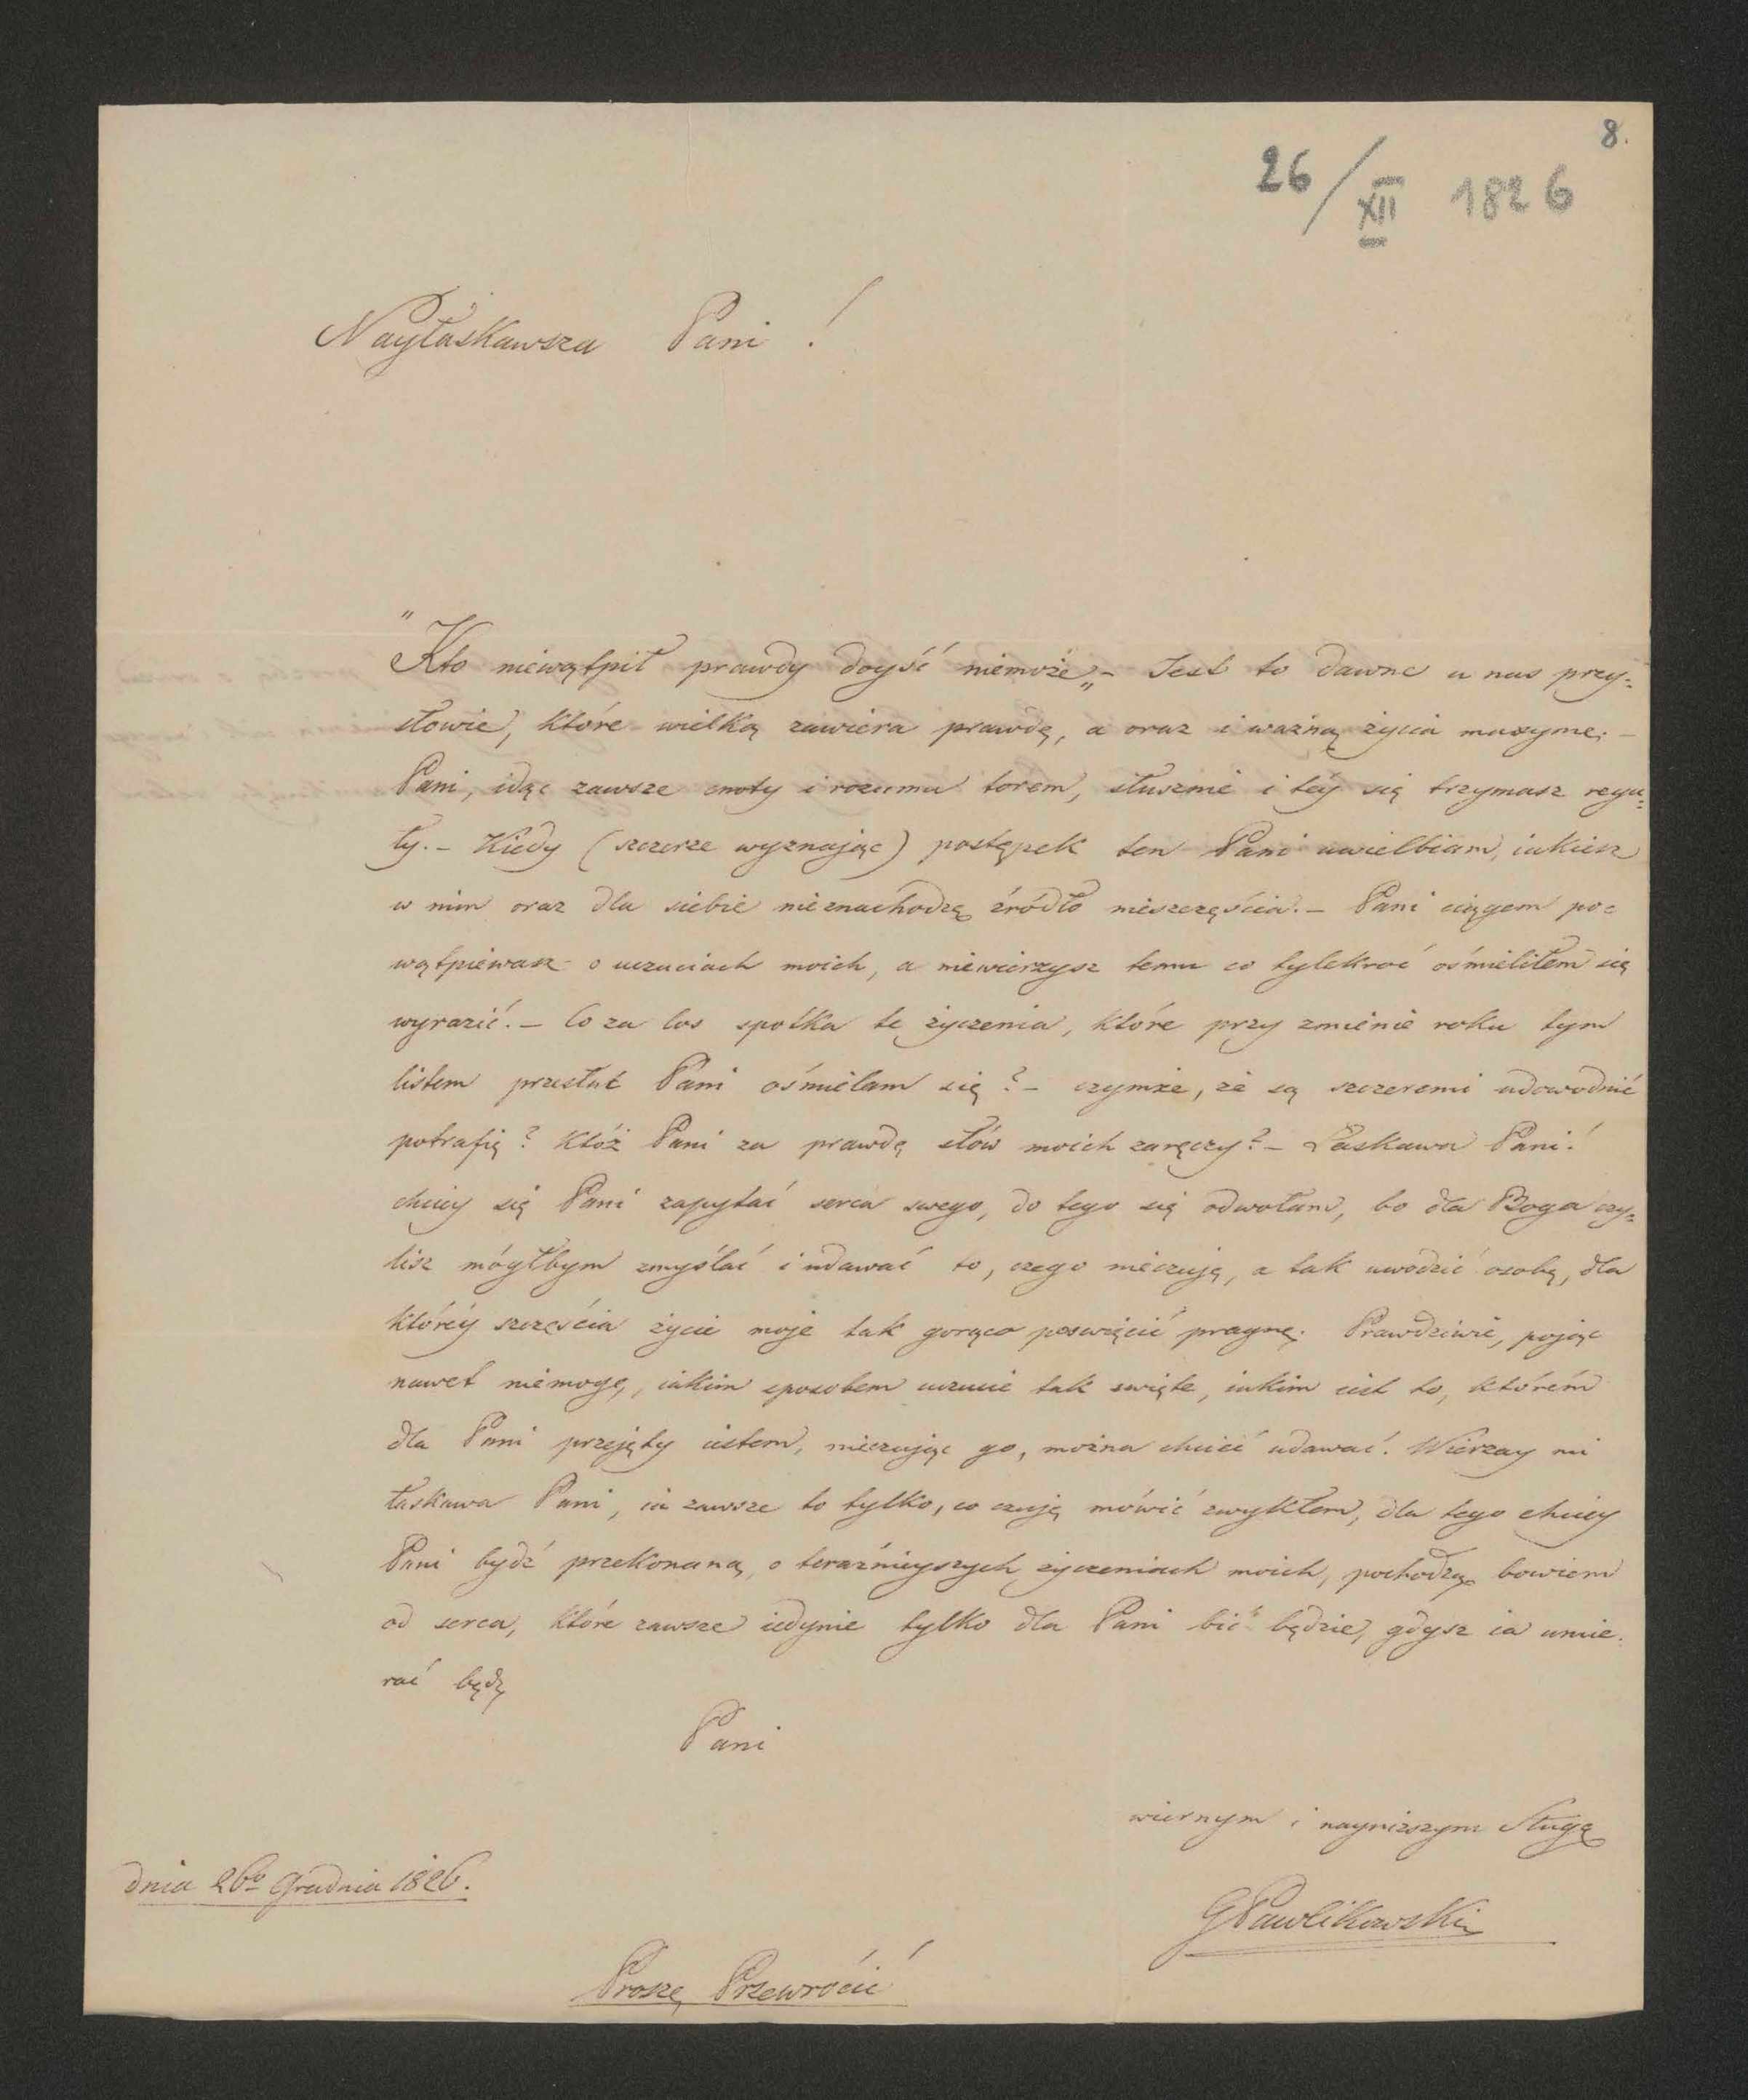 8.
26/XII 1826
Nayłaskawsza Pani!
"Kto niewątpił prawdy doyść niemoże„ – Jest to dawne u nas przy=
słowie, które wielką zawiera prawdę, a oraz i ważną życia maxymę. –
Pani, idąc zawsze cnoty i rozumu torem, słusznie i téy się trzymasz regu=
ły. – Kiedy (szczerze wyznając) postępek ten Pani uwielbiam, iakiesz
w nim oraz dla siebie nieznachodzę źródło nieszczęścia. – Pani ciągem po=
wątpiewasz o uczuciach moich, a niewierzysz temu co tylekroć ośmieliłem się
wyrazić. – Co za los spotka te życzenia, które przy zmienie roku tym
listem przesłać Pani ośmielam się? – czymże, że są szczeremi udowodnić
potrafię? Któż Pani za prawdę słów moich zaręczy? – Łaskawa Pani!
chciey się Pani zapytać serca swego, do tego się odwołam, bo dla Boga czy=
lisz mógłbym zmyślać i udawać to, czego nieczuję, a tak uwodzić osobę, dla
któréy szczęścia życie moje tak gorąco poswięcić pragnę. Prawdziwie, pojąc
nawet niemogę, iakim sposobem uczucie tak swięte, iakim iest to, którém
dla Pani przejęty iestem, nieczując go, można chcieć udawać. Wierzay mi
łaskawa Pani, ia zawsze to tylko, co czuję mówić zwykłem, dla tego chciey
Pani bydź przekonaną, o teraźnieyszych życzeniach moich, pochodzą bowiem
od serca, które zawsze iedynie tylko dla Pani bić będzie, gdysz ia umie.
rać będę
Pani
wiernym i nayniższym Sługą
dnia 26go Grudnia 1826.
GPawlikowski
Proszę Przewrócić